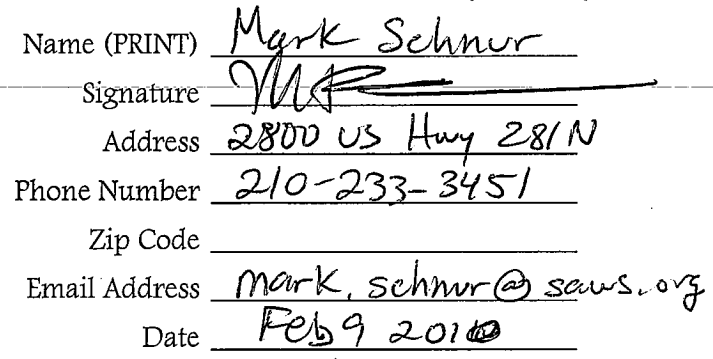 Name (PRINT) Mark Schnur
Signature
Address 2800 US Hwy 281 N
Phone Number 210-233-3451
Zip Code
Email Address mark.schnur@saws.org
Date Feb 9 2010